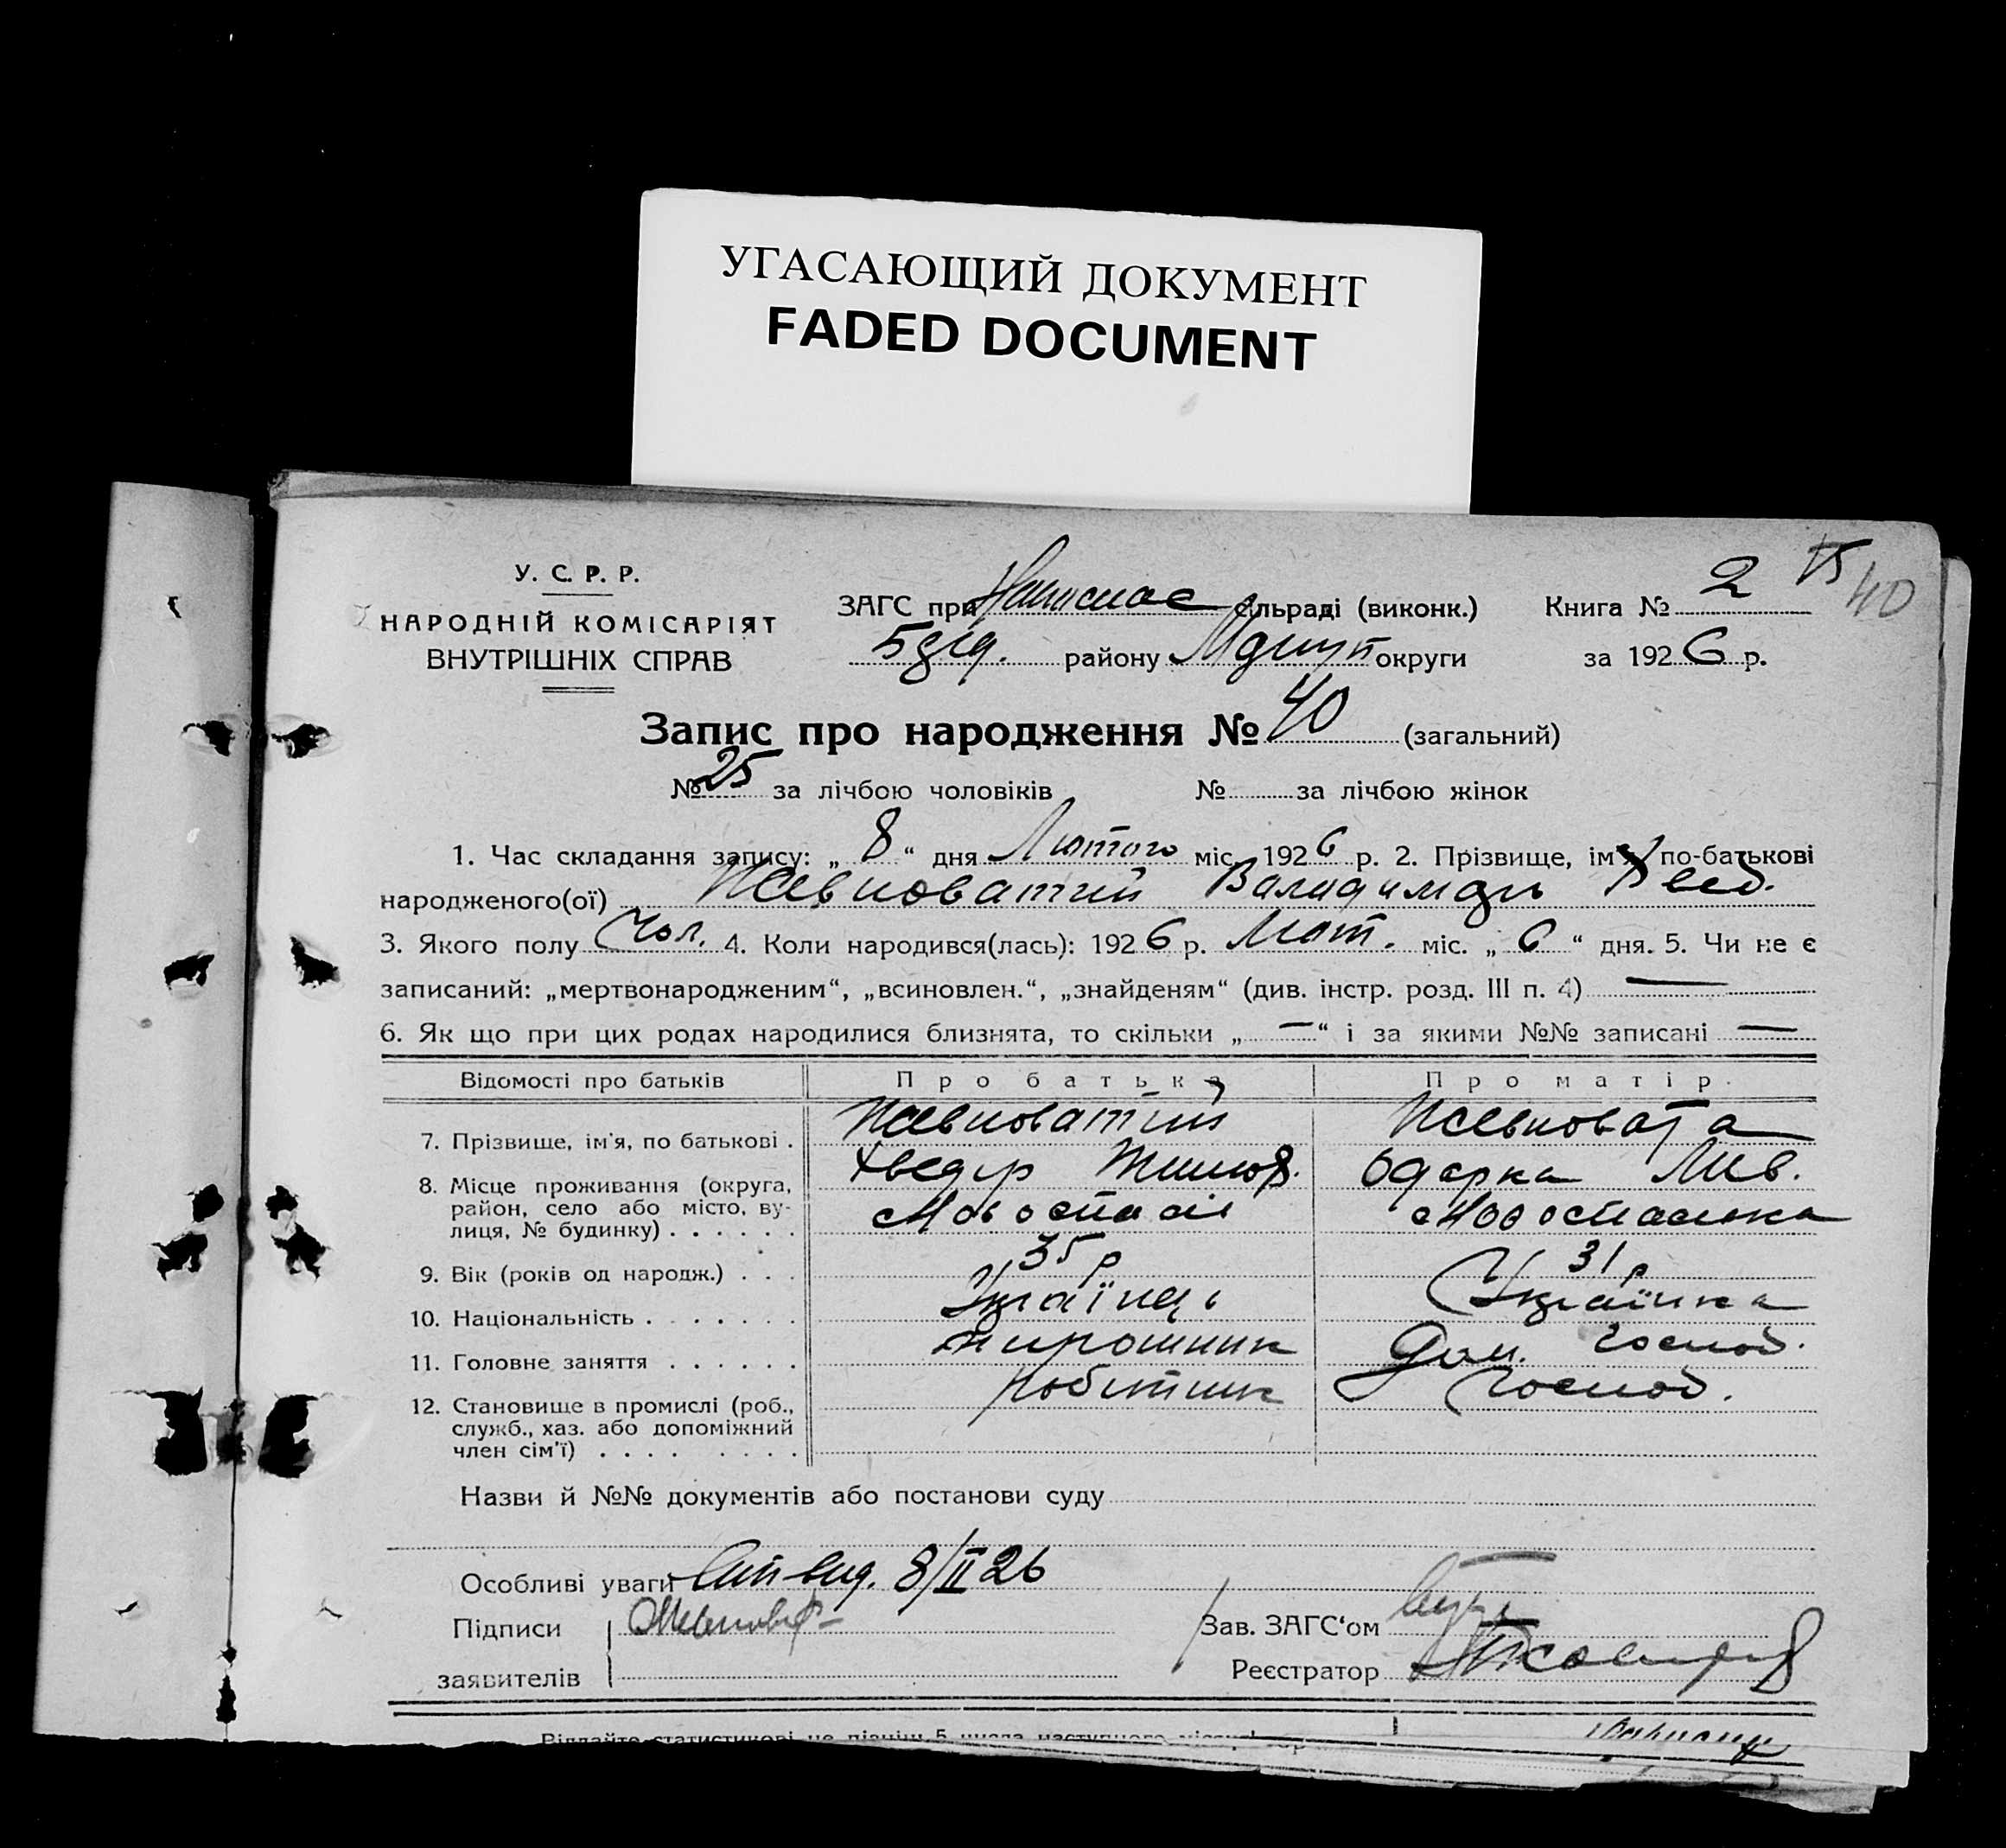 УГАСАЮЩИЙ ДОКУМЕНТ
FADED DOCUMENT
У. С. Р. Р.
НАРОДНІЙ КОМІСАРІЯТ
ВНУТРІШНІХ СПРАВ
ЗАГС при сільраді (виконк.)
району округи
Книга № 2
15
40
за 1926 р.
Запис про народження № 40 (загальний)
№ 25 за лічбою чоловіків № за лічбою жінок
1. Час складання запису: „ 8 “ дня Лютого міс. 1926 р. 2. Прізвище, ім'я, по-батькові
народженого(ої) Володимир
3. Якого полу Чол. 4. Коли народився(лась): 1926 р. Лют. міс. „ 6 “ дня. 5. Чи не є
записаний: „мертвонародженим“, „всиновлен.“, „знайденям“ (див. інстр. розд. III п. 4) —
6. Як що при цих родах народилися близнята, то скільки „ — “ і за якими №№ записані —
Відомості про батьків Про батька Про матір.
7. Прізвище, ім'я, по батькові .
Хведір
Одарка
8. Місце проживання (округа,
район, село або місто, ву-
лиця, № будинку) . . . . . .
9. Вік (років од народж.) . . . 35 р 31 р
10. Національність . . . . . . . Українець Українка
11. Головне заняття . . . . . . Мирошник Дом. Господ.
12. Становище в промислі (роб.,
служб., хаз. або допоміжний
член сім'ї) . . . . . . . .
Робітник Господ.
Назви й №№ документів або постанови суду
Особливі уваги вид. 8/II 26
Підписи
заявителів
Зав. ЗАГС'ом
Реєстратор